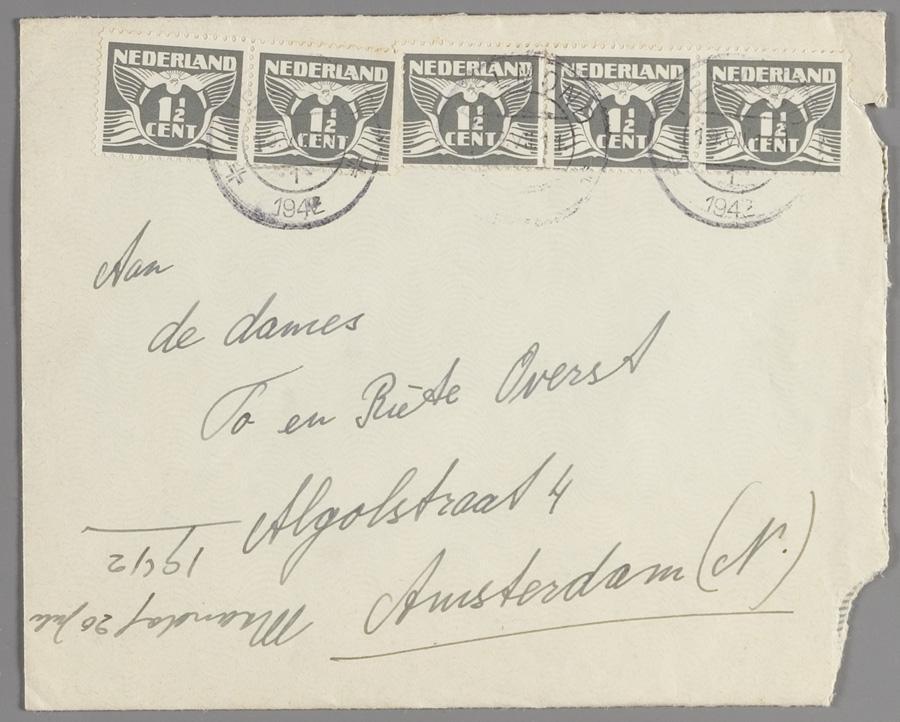 NEDERLAND
1½
CENT
NEDERLAND
1½
CENT
NEDERLAND
1½
CENT
NEDERLAND
1½
CENT
NEDERLAND
1½
CENT
1942
1942
Aan
de dames
To en Riète Overst
Algolstraat 4
Amsterdam (N.)
Maandag 20 Juli
1942